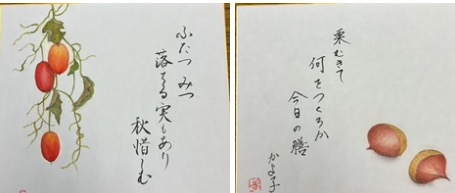 ふたつみつ
落ちる実もあり
秋惜しむ
栗むきて
何をつくろか
今日の膳
かよ子